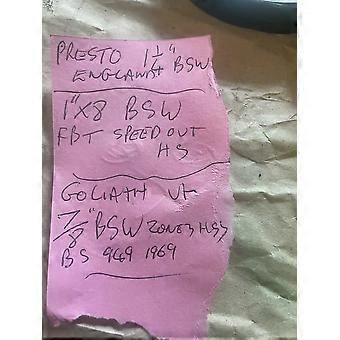 PRESTO 1 1/4"
ENGLAND BSW
1"X8 BSW
FBT SPEED OUT
HS
GOLIATH
7/8" BSW ZONE 3 HSS
BS 949 1969